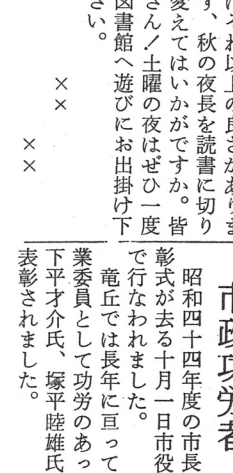 けそれ以上の良さがありま
す、秋の夜長を読書に切り
変えてはいかがですか。皆
さん！土曜の夜はぜひ一度
図書館へ遊びにお出掛け下
さい。
××
××
市政功労者
昭和四十四年度の市長
彰式が去る十月一日市役
で行なわれました。
竜丘では長年に亘って
業委員として功労のあっ
下平才介氏、塚平睦雄氏
表彰されました。